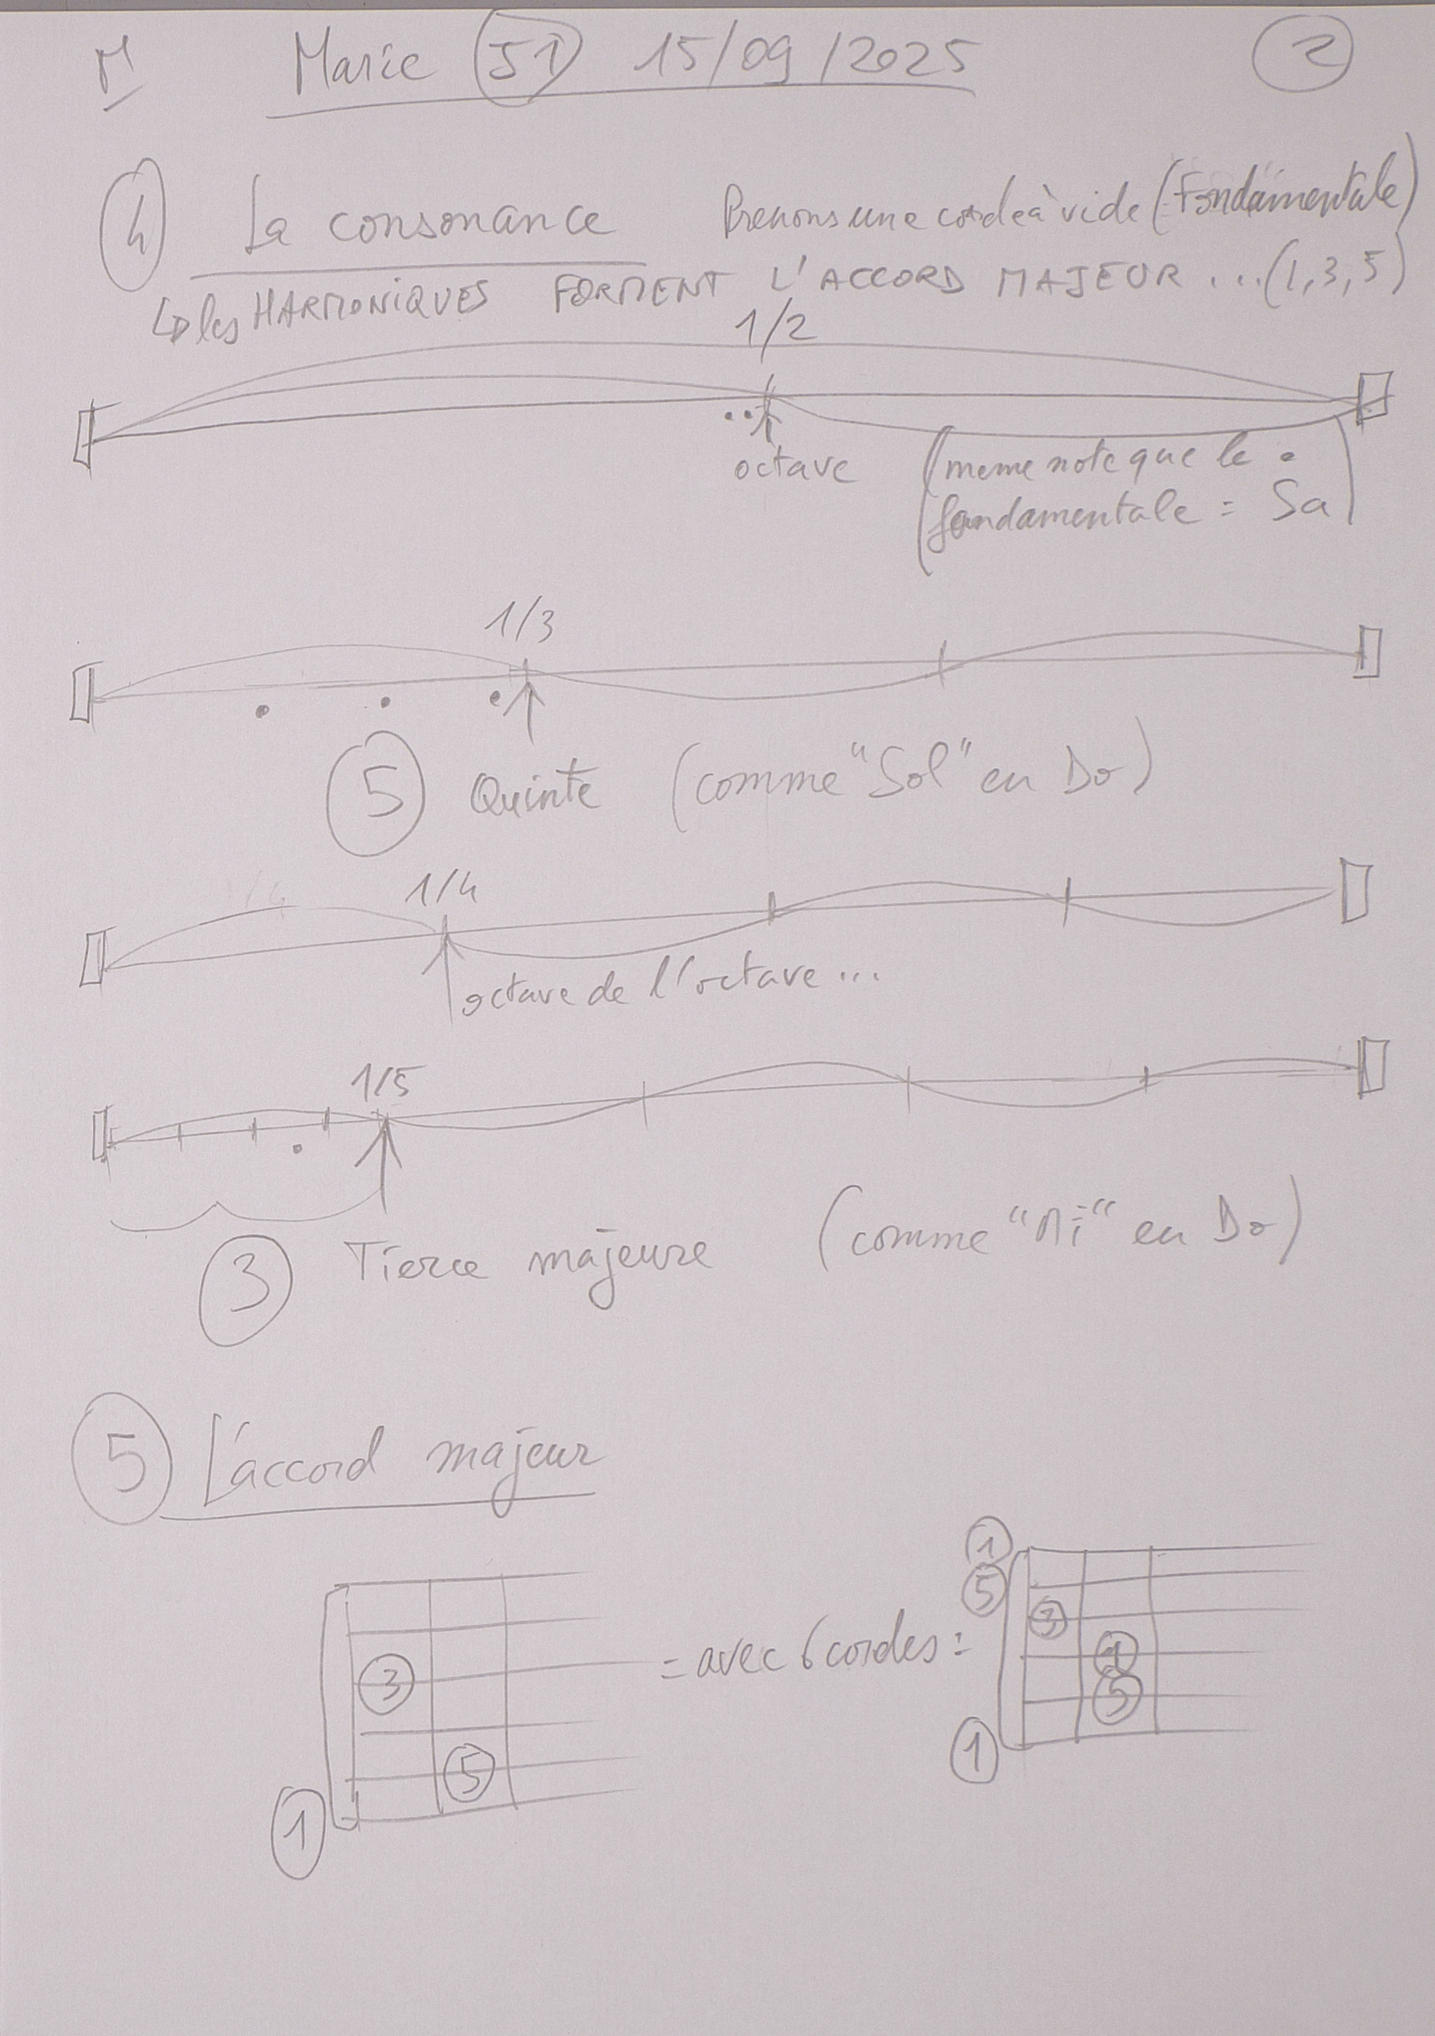 M Marie J1 15/09/2025 2
4 La consonance Prenons une corde à vide (Fondamentale)
↳ les HARMONIQUES FORMENT L'ACCORD MAJEUR ... (1, 3, 5)
1/2
octave (meme note que le
fondamentale = Sa)
1/3
5 Quinte (comme "Sol" en Do)
1/4
octave de l'octave ...
1/5
3 Tierce majeure (comme "Mi" en Do)
5 L'accord majeur
3
5
1
= avec 6 cordes =
1
5
3
1
5
1